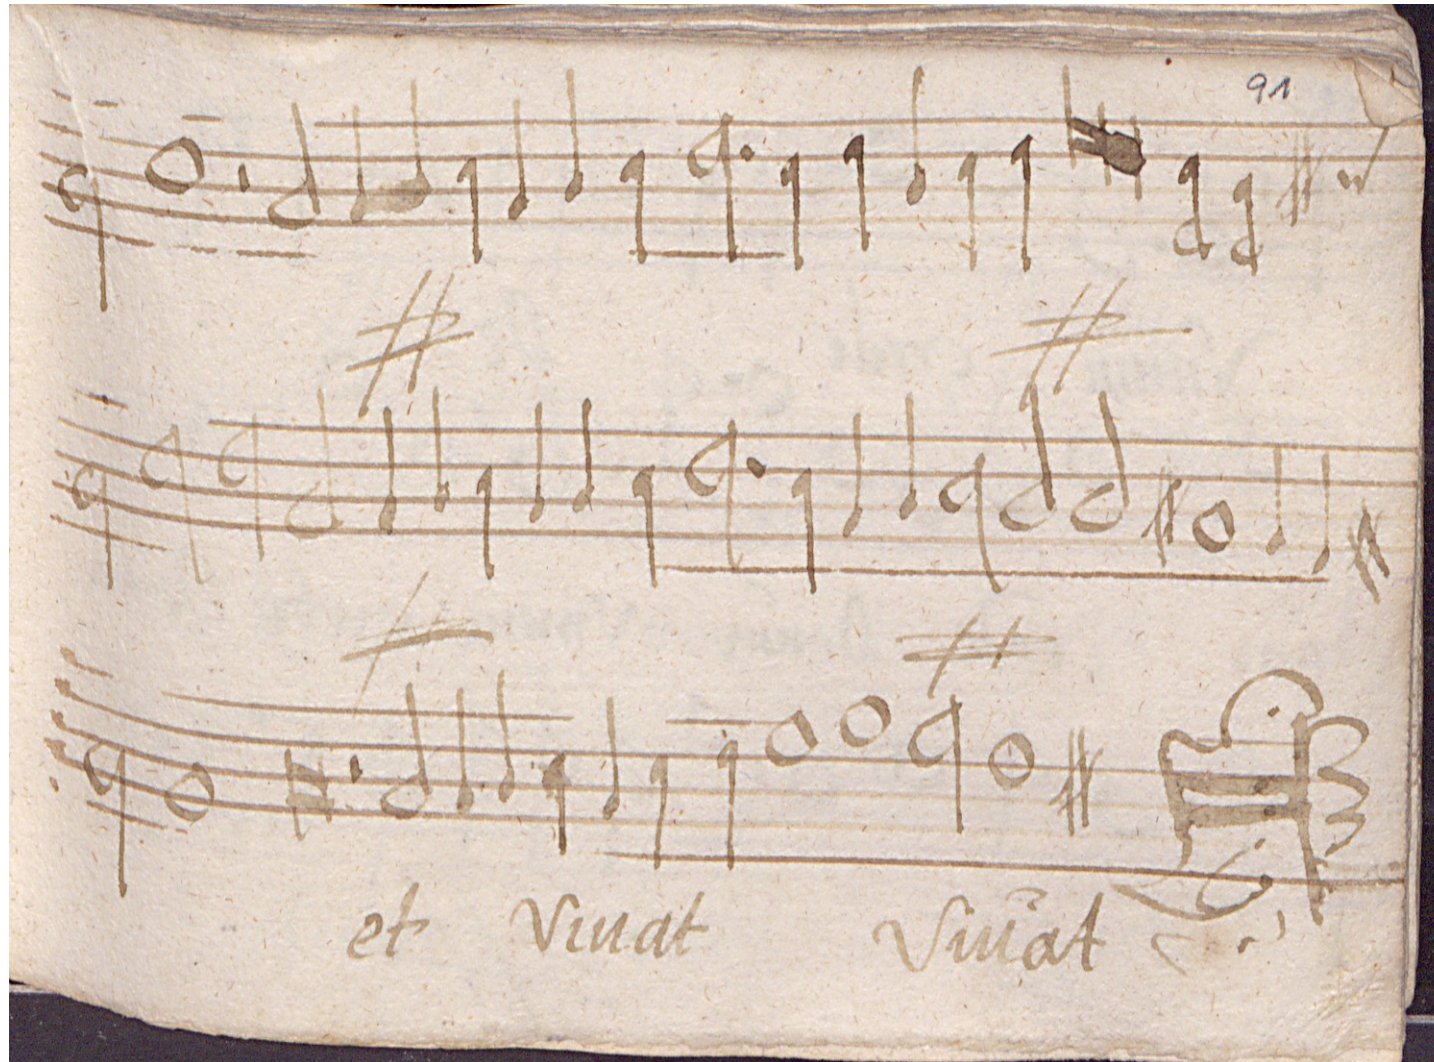 91
et Viuat Viuat